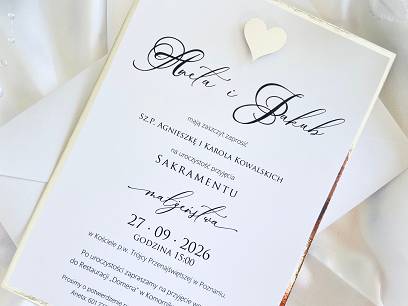 Aneta i Jakub
mają zaszczyt zaprosić
SZ.P. AGNIESZKĘ I KAROLA KOWALSKICH
na uroczystość przyjęcia
SAKRAMENTU
małżeństwa
27 · 09 · 2026
GODZINA 15:00
w Kościele p.w. Trójcy Przenajświętszej w Poznaniu
Po uroczystości zapraszamy na przyjęcie
do Restauracji "Domena" w
Prosimy o potwierdzenie
Aneta 601